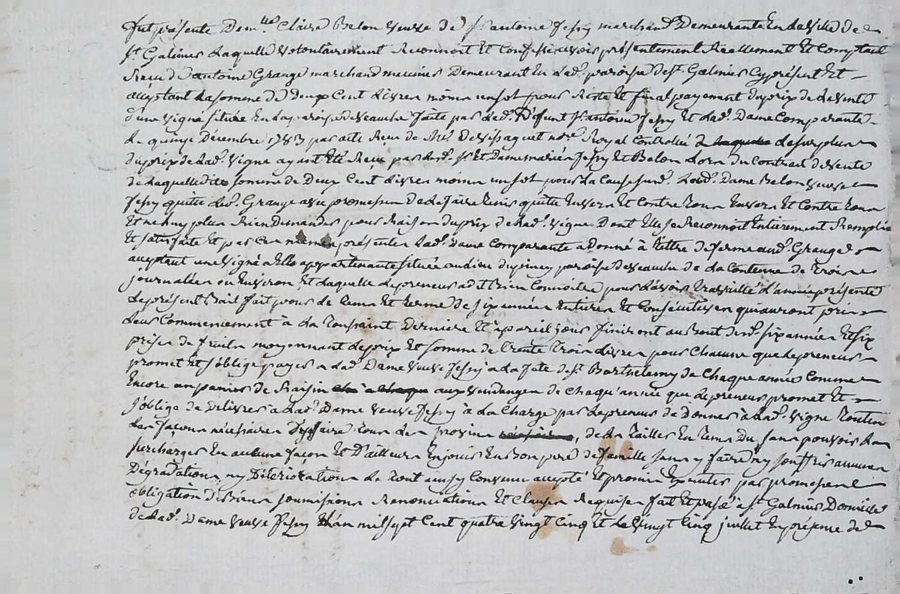 fut présente Dem.lle Claire Belon veuve de s.r antoine Jessy marchand Demeurante En la ville de
s.t Galmier laquelle volontairement Reconnoit et Confesse avoir présentement Reellement et Comptant
Receu d'antoine Grange marchand meunier Demeurant En lad. paroisse de s.t Galmier Cy présent Et
acceptant la somme de Deux Cent Livres moins un sol pour Reste et final payement du prix de la vente
d'une vigne située En la paroisse de veauche faite par led. Défunt s.r antoine Jessy et lad. Dame Comparante
Le quinze Décembre 1783 par acte Receu de M.e Dessaguet no.re Royal Controllé le surplus
du prix de lad. vigne ayant été Receu par led. s.r et Dame mariés Jessy Et Belon Lors du Contract de vente
de laquelle dite somme de Deux Cent Livres moins un sol pour la Cause susd. Lad. Dame Belon veuve
Jessy quitte led. Grange avec promesse de le faire tenir quitte Envers et Contre tous
Et ne luy plus Rien Demander pour Raison du prix de lad. vigne Dont Elle se Reconnoit Entierement Remplie
Et satisfaite Et par Ces mêmes présentes lad. Dame Comparante a Donné à tittre de ferme aud. Grange
acceptant une vigne a Elle appartenante située au lieu du paroisse de veauche de la Contenue de trois
journalées ou Environ Et laquelle le preneur a dit Bien Connoitre pour l'avoir travaillé l'année présente
le présent Bail fait pour le tems Et terme de six années Entieres Et Consécutives qui auront pris
leur Commencement à la toussaint Derniere Et a pareil jour finiront au Bout desd. six années Et six
prises de fruits moyennant le prix Et somme de trente trois Livres pour Chacune que le preneur
promet Et s'oblige payer a lad. Dame veuve Jessy à la fete de s.t Barthelemy de Chaque année Comme
Encore un panier de Raisin aux vendanges de Chaqu'année que le preneur promet Et
s'oblige de Delivrer à lad. Dame veuve Jessy à la Charge par le preneur de Donner à lad. vigne toutes
les façons nécessaires D'y faire tous les provins, de la tailler En tems Du sans pouvoir la
surcharger En aucune façon Et D'ailleurs En jouir En Bon pere de famille sans y faire ny souffrir aucunes
Dégradations ny Déteriorations Le tout ainsy Convenu accepté Et promis Executer par promesse
obligation de Biens soumissions Renonciations Et Clauses Requises fait Et passé a s.t Galmier Domicile
de lad. Dame veuve Jessy L'an mil sept Cent quatre vingt Cinq Et Le vingt Cinq juillet En présence de